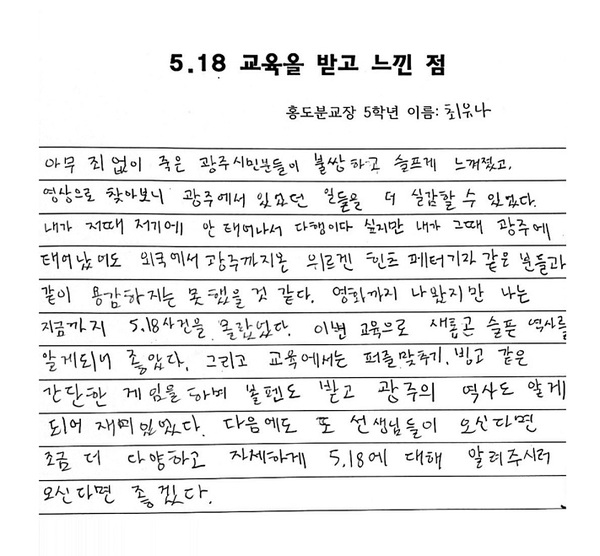 5.18 교육을 받고 느낀 점
홍도분교장 5학년 이름: 최유나
아무 죄 없이 죽은 광주시민분들이 불쌍하고 슬프게 느껴졌고,
영상으로 찾아보니 광주에서 있었던 일들을 더 실감할 수 있었다.
내가 저때 저기에 안 태어나서 다행이다 싶지만 내가 그때 광주에
태어났어도 외국에서 광주까지온 위르겐 힌츠 페터기자 같은 분들과
같이 용감하지는 못했을 것 같다. 영화까지 나왔지만 나는
지금까지 5.18사건을 몰랐었다. 이번 교육으로 새롭고 슬픈 역사를
알게되어 좋았다. 그리고 교육에서는 퍼즐맞추기, 빙고 같은
간단한 게임을하며 볼펜도 받고 광주의 역사도 알게
되어 재미있었다. 다음에도 또 선생님들이 오신다면
조금 더 다양하고 자세하게 5.18에 대해 알려주시러
오신다면 좋겠다.